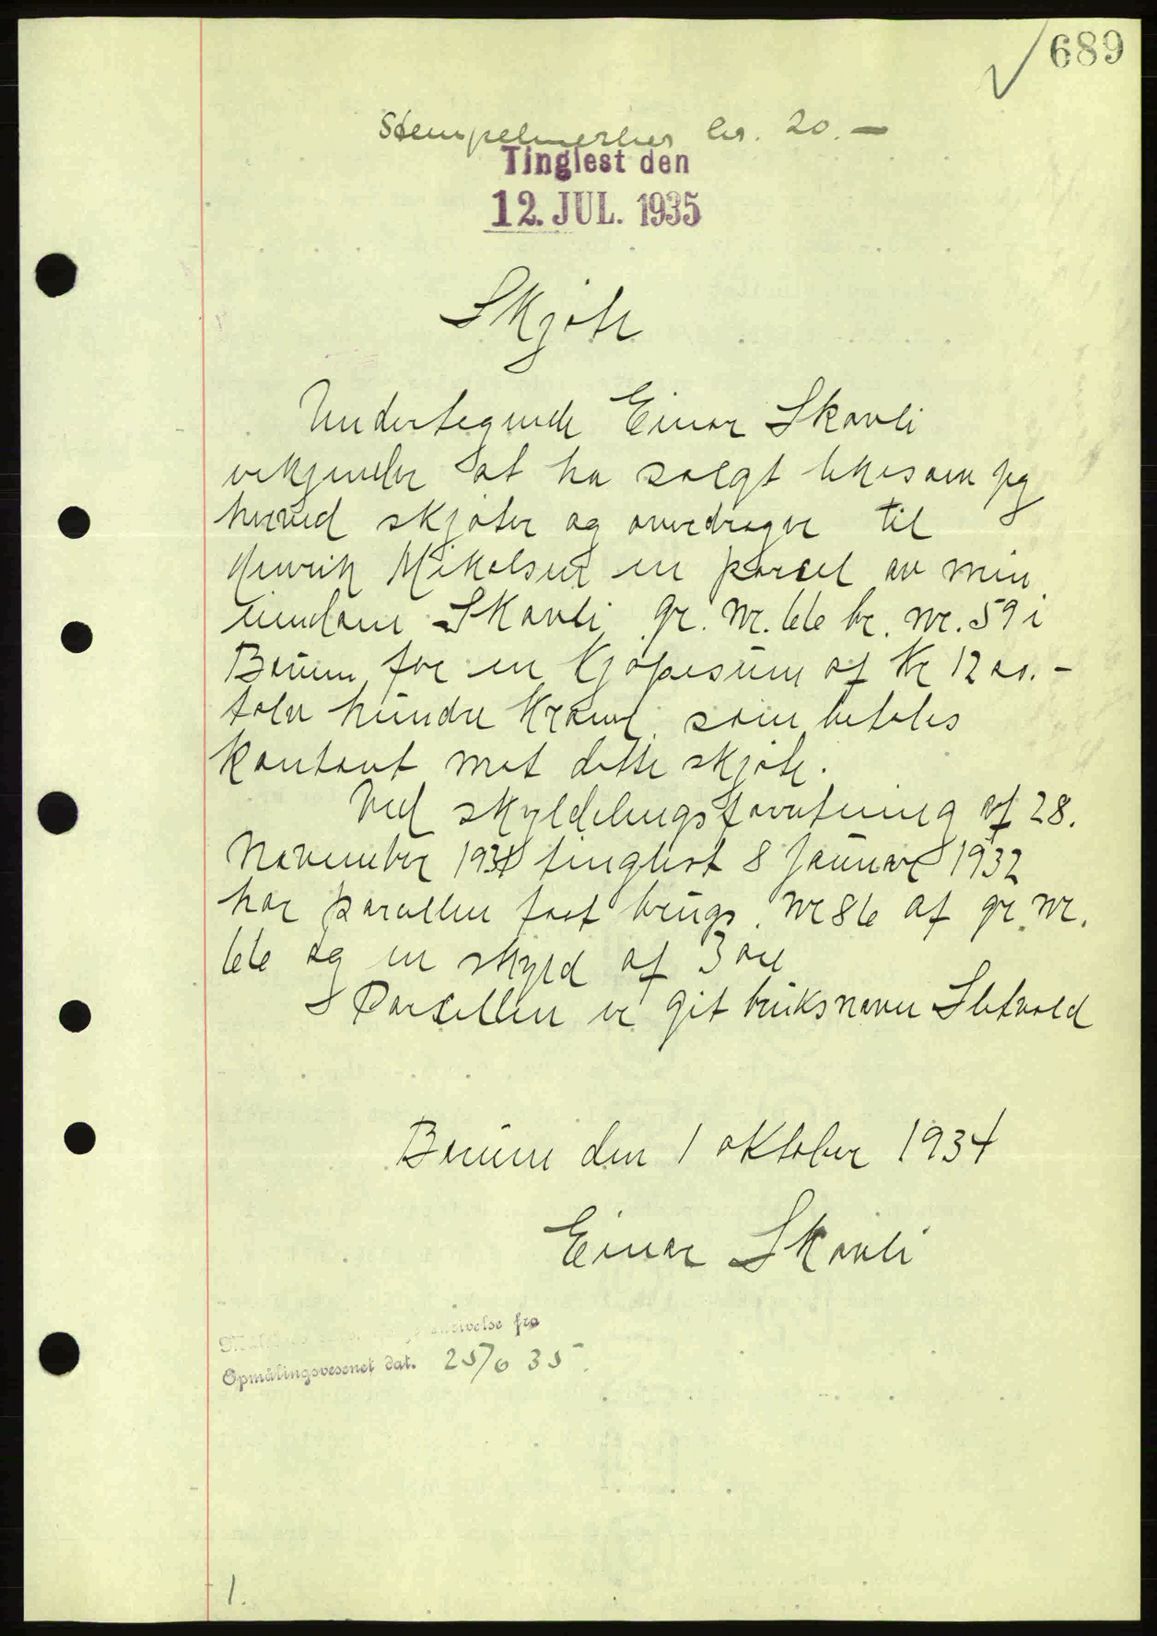 689
Stempelmerker kr. 20.—
Tinglest den
12. JUL. 1935
Skjøte
Undertegnede Einar Skavli
erkjender at ha solgt likesom jeg
herved skjøter og overdrager til
Henrik Mikalsen en parsel av min
eiendom Skavli gr. nr. 66 br. nr. 59 i
Bærum for en kjøpesum af Kr 1200.-
tolv hundre kroner som betales
kontant mot dette skjøte.
Ved skyldelingsforretning af 28.
November 1931 tinglest 8 Januar 1932
har parcellen faat brugs nr 86 af gr. nr.
66 og en skyld af 3 øre
Parsellen er git bruksnavn Sletvold
Bærum den 1 oktober 1934
Einar Skavli
fra
Opmålingsvesenet dat. 25/6 35.
1.